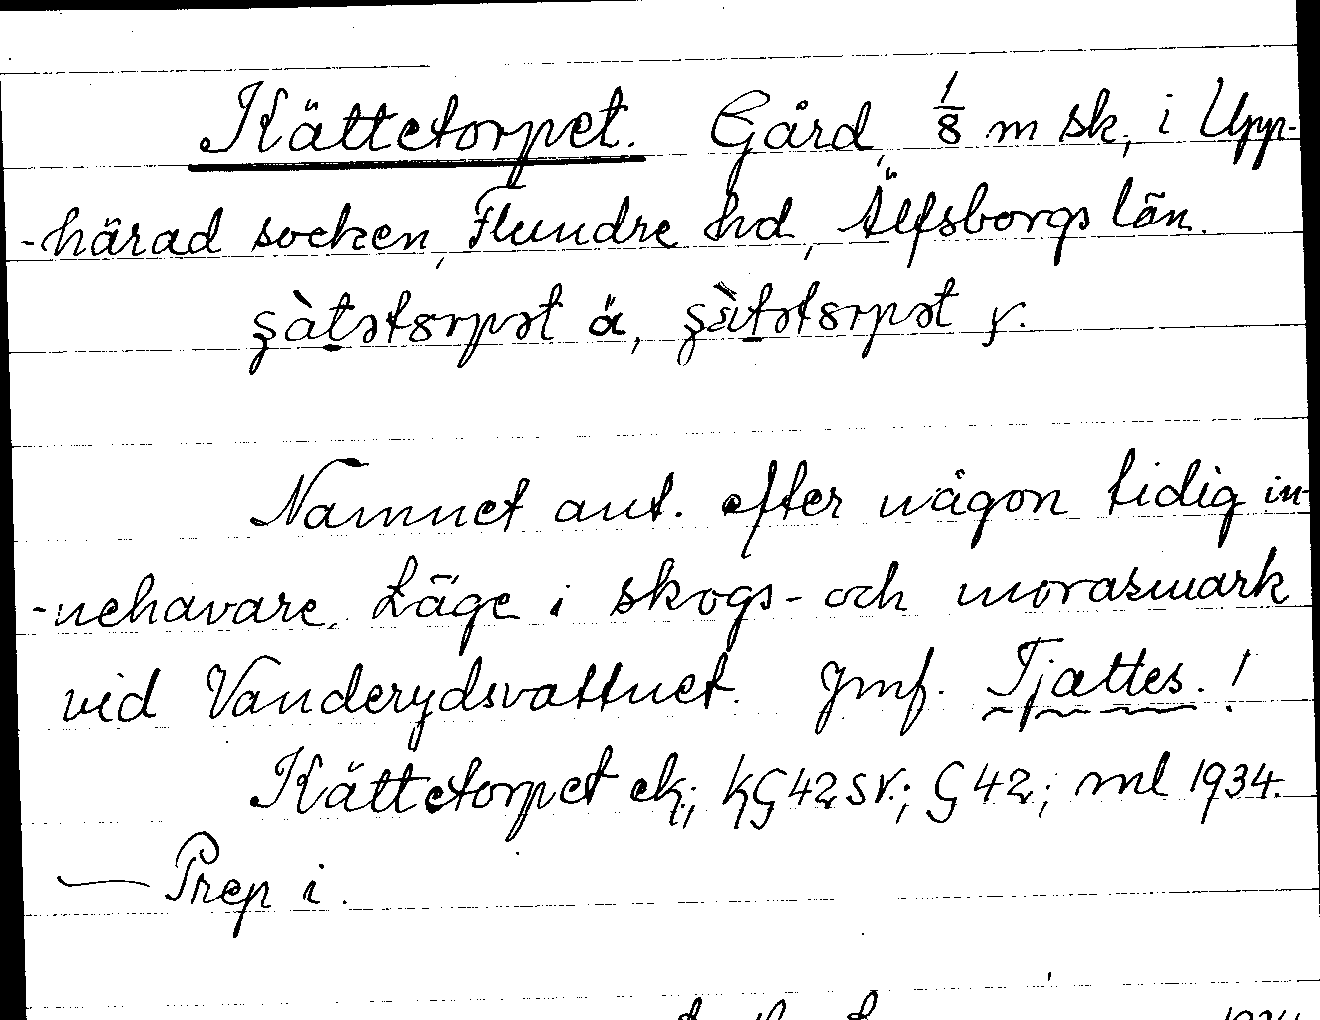 Kättetorpet. Gård, 1/8 m sk, i Upp-
-härad socken, Flundre hd, Älfsborgs län.
Namnet ant. efter någon tidig in-
-nehavare. Läge i skogs- och morasmark
vid Vanderydsvattnet. Jmf. Tjættes. !
Kättetorpet ek; kG42SV.; G42; ml 1934.
— Prep i.